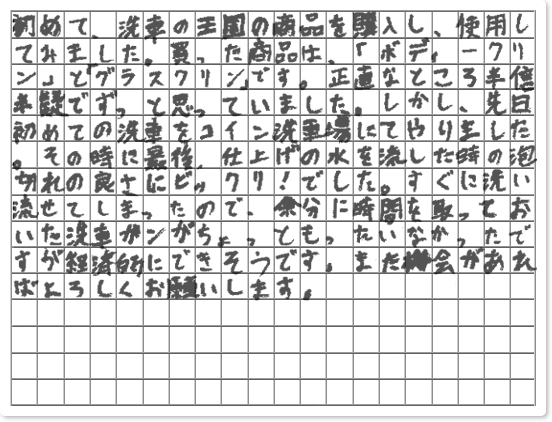 初めて、洗車の王国の商品を購入し、使用し
てみました。買った商品は、「ボディークリ
ン」と「グラスクリン」です。正直なところ半信
半疑でずっと思っていました。しかし、先日
初めての洗車をコイン洗車場にてやりました
。その時に最後、仕上げの水を流した時の泡
切れの良さにビックリ!でした。すぐに洗い
流せてしまったので、余分に時間を取ってお
いた洗車がンがちょっともったいなかったで
すが経済的にできそうです。また機会があれ
ばよろしくお願いします。